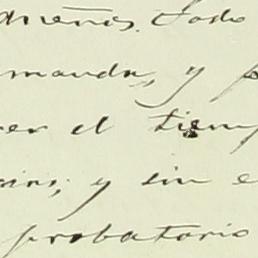 dueños. Todo
manda, y p
er el tiemp
cins; y sin e
probatorio